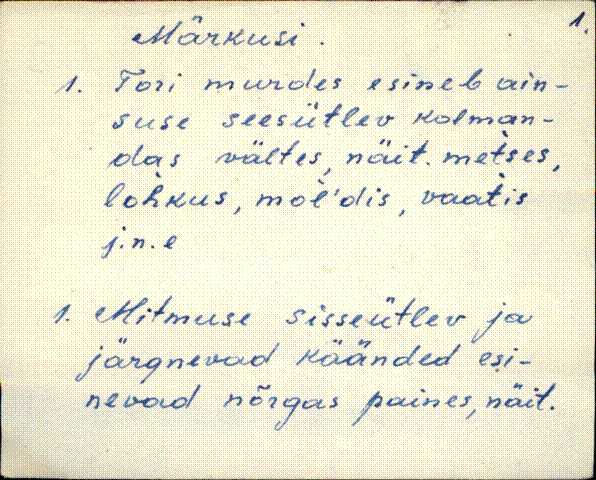 1.
Märkusi.
1. Tori murdes esineb ain-
suse seesütlev kolman-
das vältes, näit. mètses,
lòhkus, mòl'dis, vaatìs
j.n.e
1. Mitmuse sisseütlev ja
järgnevad käänded esi-
nevad nõrgas paines, näit.